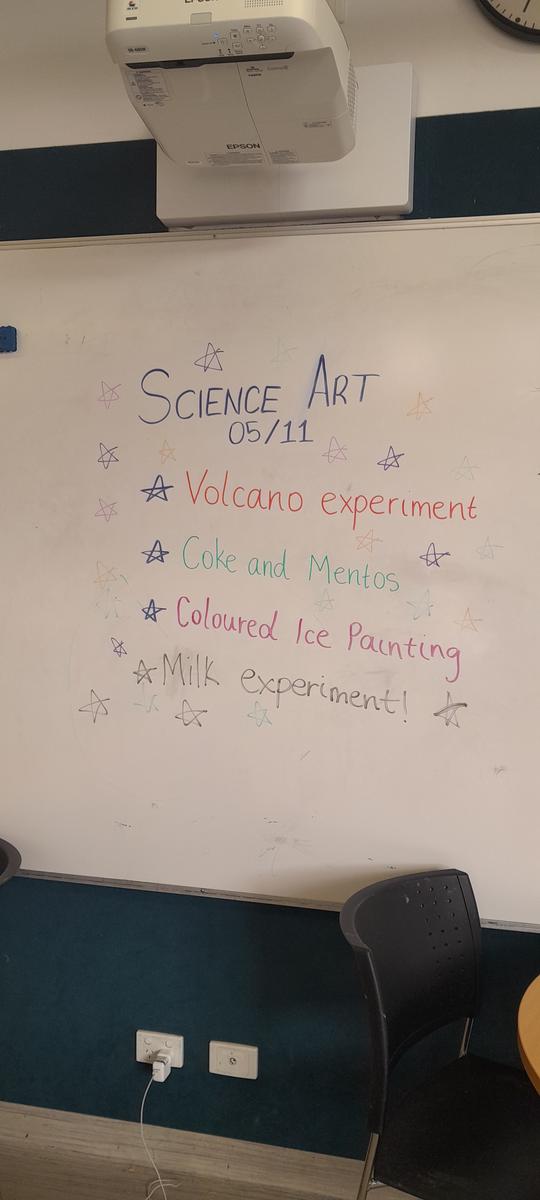 EPSON
SCIENCE ART
05/11
Volcano experiment
Coke and Mentos
Coloured Ice Painting
Milk experiment!